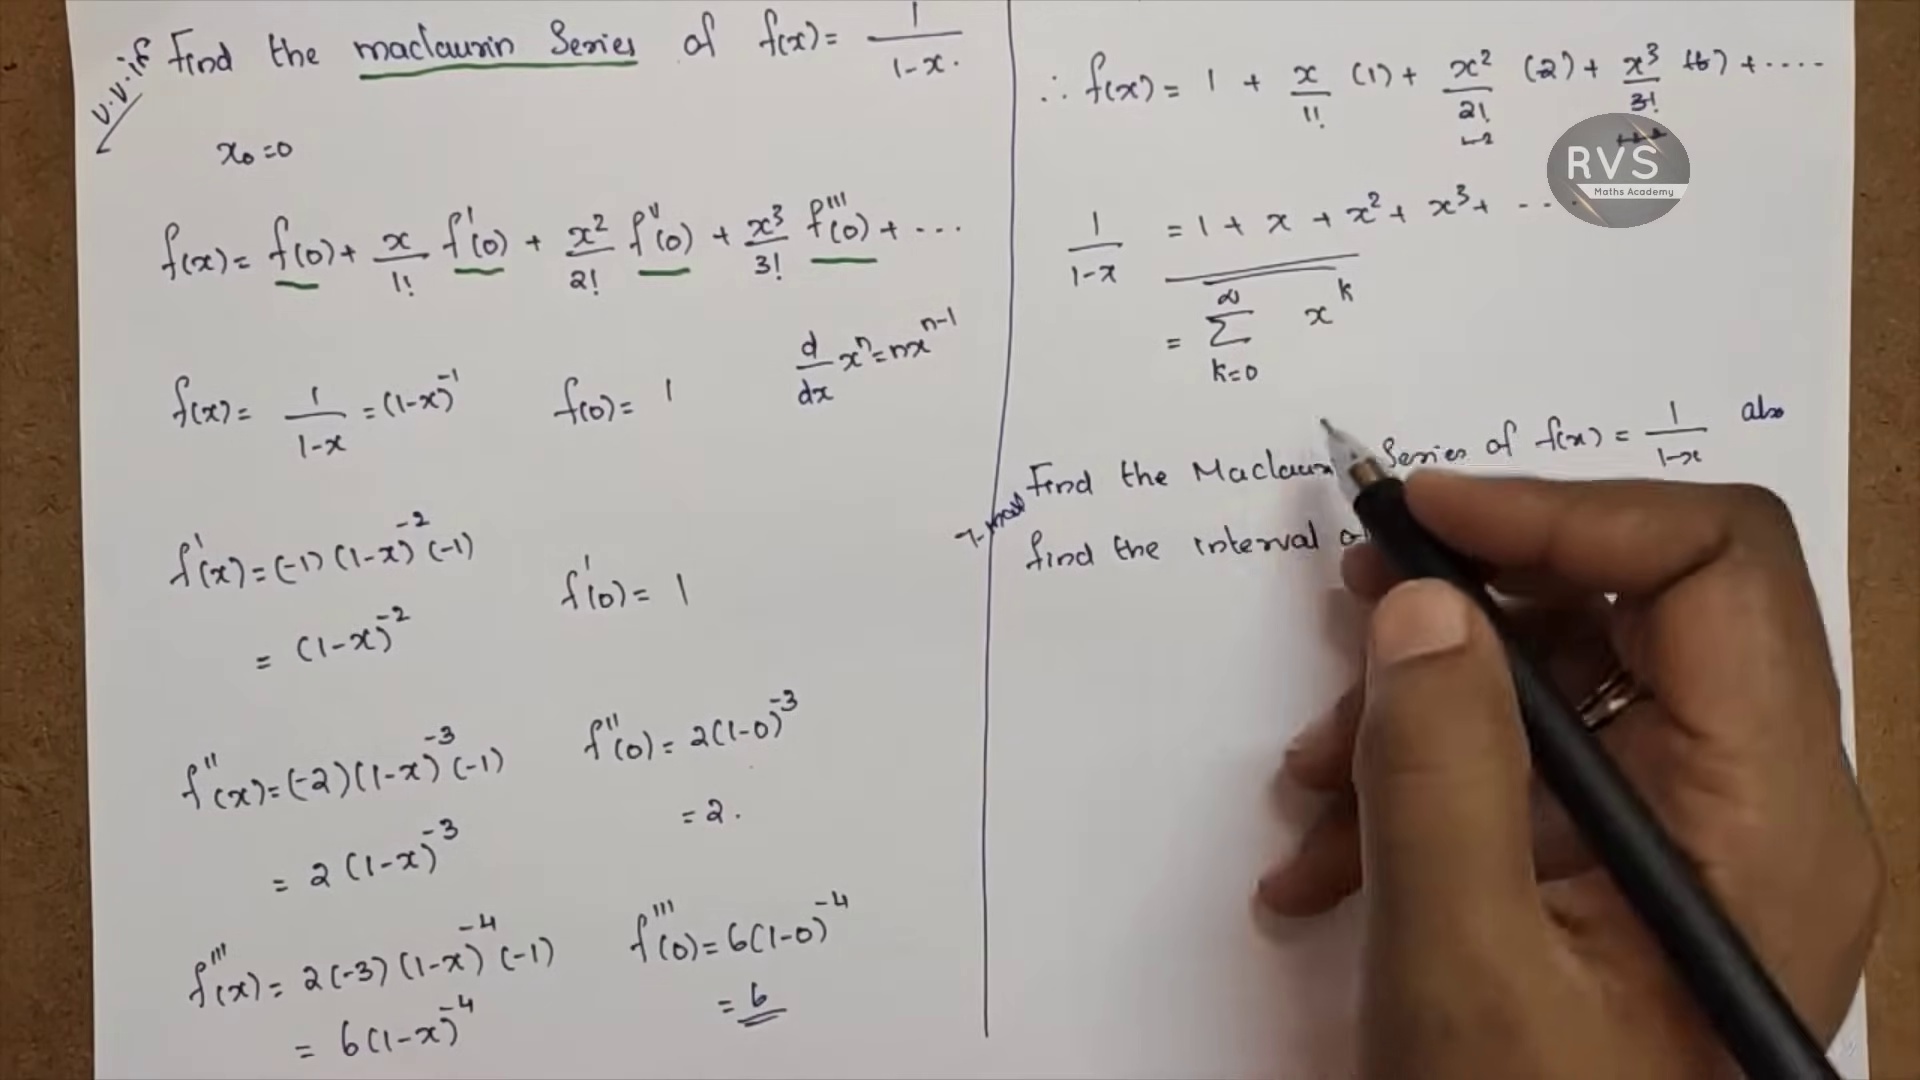 v.v.if Find the maclaurin Series of f(x) = 1/(1-x).
x₀=0
f(x) = f(0) + x/1! f'(0) + x²/2! f''(0) + x³/3! f'''(0) + ...
d/dx xⁿ = nxⁿ⁻¹
f(x) = 1/(1-x) = (1-x)⁻¹ f(0) = 1
f'(x) = (-1)(1-x)⁻²(-1)
= (1-x)⁻² f'(0) = 1
f''(x) = (-2)(1-x)⁻³(-1) f''(0) = 2(1-0)⁻³
= 2(1-x)⁻³ = 2.
f'''(x) = 2(-3)(1-x)⁻⁴(-1) f'''(0) = 6(1-0)⁻⁴
= 6(1-x)⁻⁴ = 6
∴ f(x) = 1 + x/1! (1) + x²/2! (2) + x³/3! (6) + ....
RVS
Maths Academy
1/(1-x) = 1 + x + x² + x³ + ...
= ∑_{k=0}^{∞} x^k
Find the Maclaurin Series of f(x) = 1/(1-x) also
find the interval